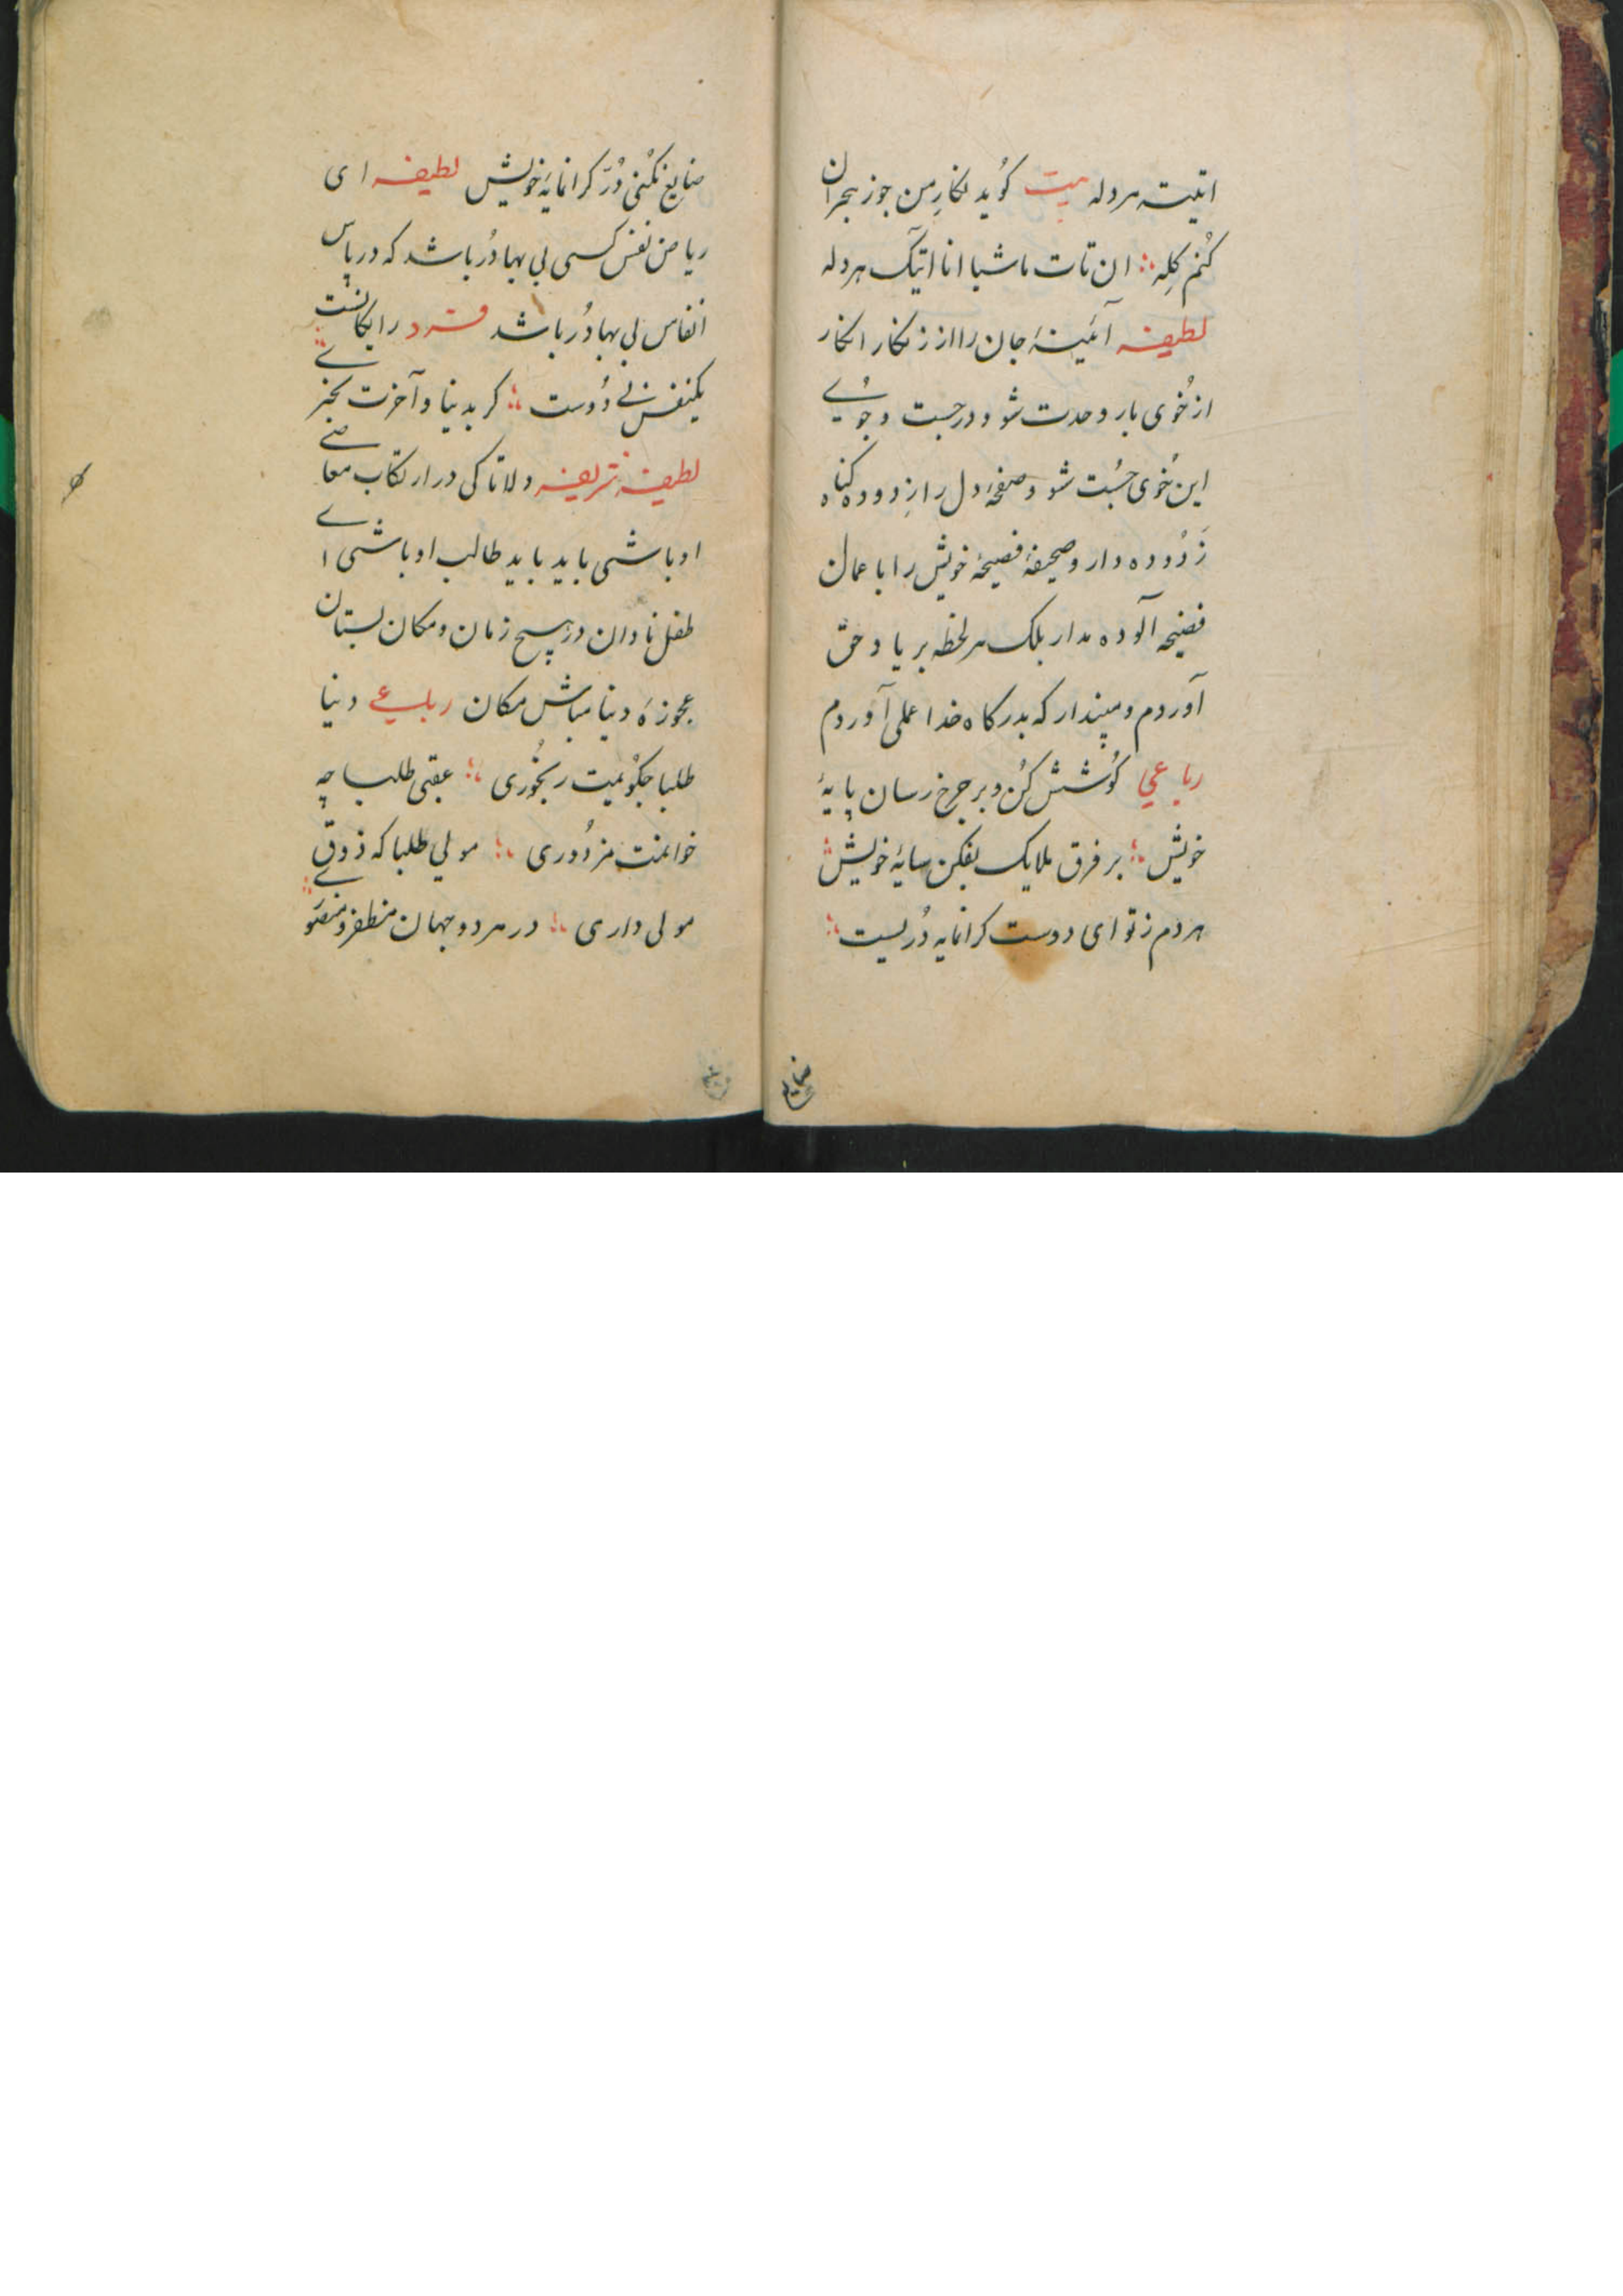 اتیته هردله بیت کُوید نکارِ من جوز هجران
کُنم کِله ؞ ان تات ماشیا انا اتیک هردله
لطیفه آئینهٔ جان را از زنکار انکار
از خُوی بار وحدت شو و در جست و جُوے
این خُوی جُست شو و صفحهٔ دل را زِ دوده کناه
زدُوده دار و صحیفهٔ فصیحهٔ خویش را باعمال
فضیحه آلوده مدار بلک هر لحظه بر یاد حق
آور دم و مپندار که بدرکاه خدا عملی آوردم
رباعی کُوشش کُن و بر چرخ رسان پایهٔ
خویش ؞ بر فرق ملایک بفکن سایهٔ خویش ؞
هردم ز تو ای دوست کرانمایه دُریست ؞
ضایع
ضایع نکنی دُرّ کرانمایهٔ خویش لطیفه ای
ریاض نفس کسی بی بها دُر باشد که در پاس
انفاس بی بها دُر باشد فرد رایکانست
یکنفس بی دُوست ؞ کر بدنیا و آخرت بخرے
لطیفهٔ شریفه دلا تا کی در ارتکاب معاصے
اوباشی باید باید طالب او باشی اے
طفل نادان در هیچ زمان و مکان بستان
عجوزهٔ دنیا مباش مکان رباعی دنیا
طلبا چکُویمت رنجُوری ؞ عقبی طلبا چه
خوانمت مزدُوری ؞ مولی طلبا که ذوق
مولی داری ؞ در هر دو جهان مظفر و منصورے